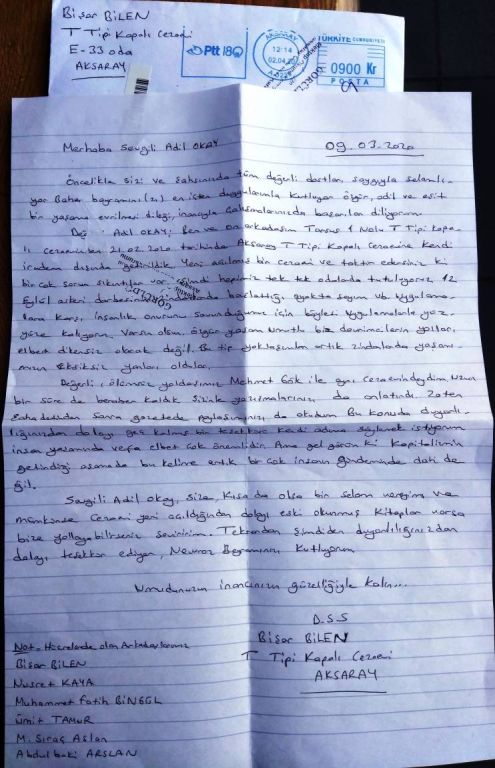 Bişar BİLEN
T Tipi Kapalı Cezaevi
E-33 oda
AKSARAY
Ptt 180
AKSARAY
12:14
02.04.20
TÜRKİYE CUMHURİYETİ
0900 Kr
POSTA
Merhaba Sevgili Adil OKAY 09.03.2020
Öncelikle sizi ve şahsınızda tüm değerli dostları saygıyla selamlı-
yor Bahar bayramını(zı) en içten duygularımla kutluyor özgür, adil ve eşit
bir yaşama evrilmesi dileği, inancıyla çalışmalarınızda başarılar diliyorum
Değ. Adil OKAY; Ben ve on arkadaşım Tarsus 1 Nolu T Tipi kapa-
lı cezaevinden 21.02.2020 tarihinde Aksaray T Tipi Kapalı Cezaevine kendi
irademiz dışında getirildik. Yeni açılmış bir cezaevi ve taktir edersiniz ki
bir çok sorun sıkıntıları var. Şimdi hepimiz tek tek odalarda tutuluyoruz. 12
Eylül askeri darbesinin başlattığı, ayakta sayım vb. uygulama-
lara karşı insanlık onurunu savunduğumuz için böylesi uygulamalarla yüz
yüze kalıyoruz. Varsın olsun, özgür yaşam umutlu biz devrimcilerin yolları,
elbet dikensiz olacak değil. Bu tip yaklaşımlar artık zindanlarda yaşamı-
mızın eksiksiz yanları oldular.
Değerli, ölümsüz yoldaşımız Mehmet Gök ile aynı cezaevindeydim. Uzun
bir süre de beraber kaldık. Sizinle yazışmalarınızı da anlatırdı. Zaten
şahadetinden sonra gazetede paylaşımınızı da okudum. Bu konuda duyarlı-
lığınızdan dolayı geç kalmış bir teşekkürü kendi adıma söylemek istiyorum
insan yaşamında vefa elbet çok önemlidir. Ama gel görün ki Kapitalizmin
getirdiği aşamada bu kelime artık bir çok insanın gündeminde dahi de-
ğil.
Sevgili Adil Okay, size, kısa da olsa bir selam vereyim ve
mümkünse cezaevi yeni açıldığından dolayı eski okunmuş kitaplar varsa
bize yollayabilirseniz sevinirim. Tekrardan şimdiden duyarlılığınızdan
dolayı teşekkür ediyor, Newroz Bayramınızı kutluyorum
Umudunuzun inancınızın güzelliğiyle kalın...
D.S.S
Bişar BİLEN
T Tipi Kapalı Cezaevi
AKSARAY
Not - Hücrelerde olan Arkadaşlarımız
Bişar BİLEN
Nusret KAYA
Muhammet Fatih BİNGÖL
Ümit TAMUR
M. Siraç Aslan
Abdulbaki ARSLAN